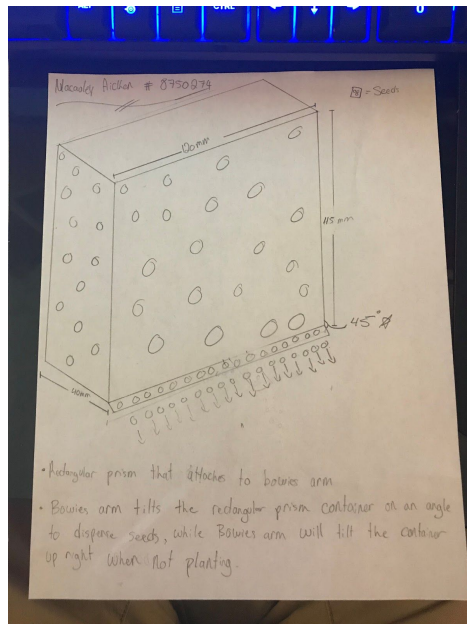 Macauley Aicken # 8750274
= Seeds
120mm
115 mm
45°
40mm
• Rectangular prism that attaches to bowies arm
• Bowies arm tilts the rectangular prism container on an angle
to disperse seeds, while Bowies arm will tilt the container
up right when not planting.
CTRL
0